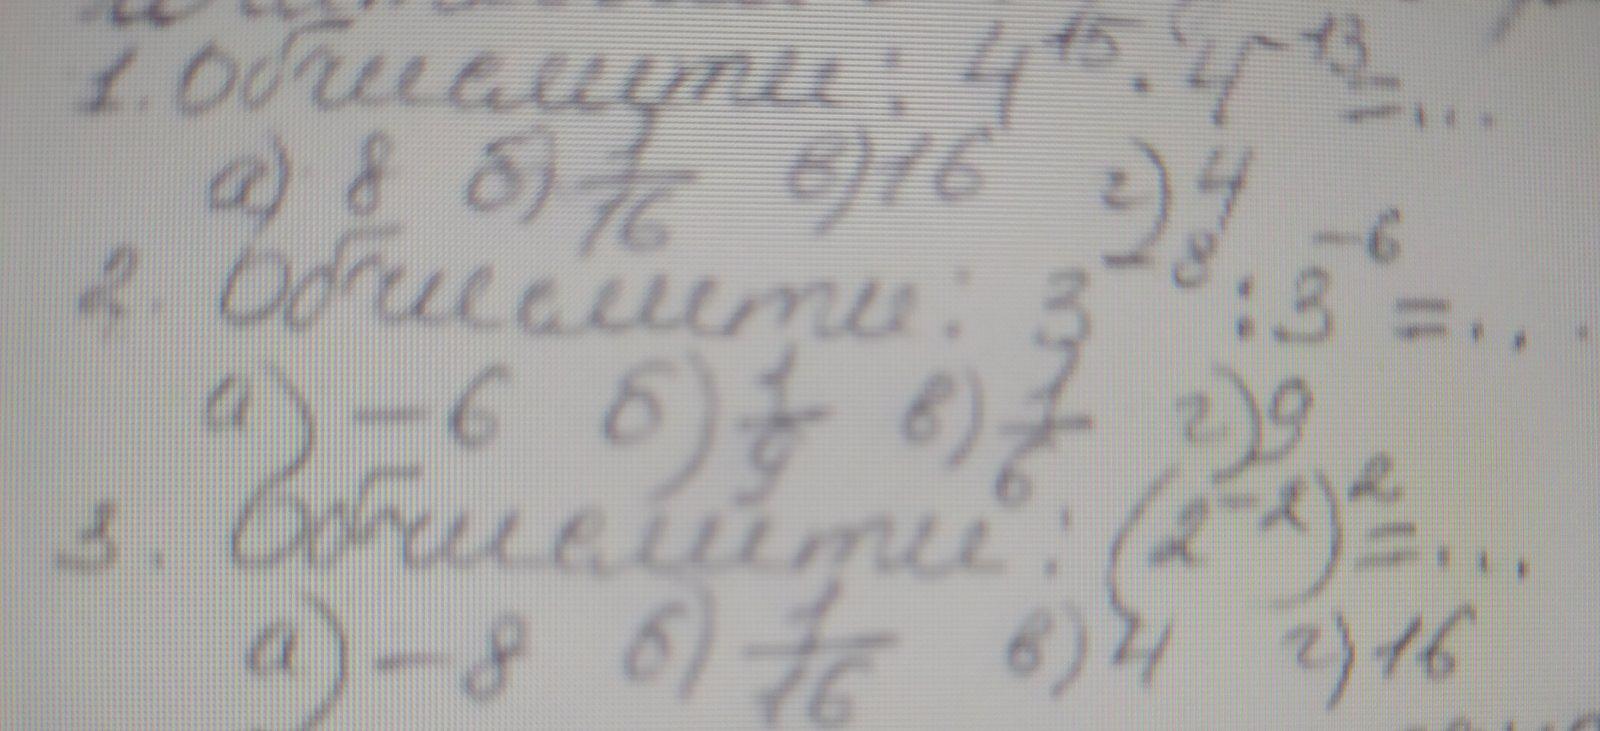 1. Обчислити: 4¹⁵ · 4⁻¹³ = ...
а) 8 б) 1/16 в) 16 г) 4
2. Обчислити: 3⁻⁸ : 3⁻⁶ = ...
а) -6 б) 1/9 в) 1/6 г) 9
3. Обчислити: (2⁻²)² = ...
а) -8 б) 1/16 в) 4 г) 16